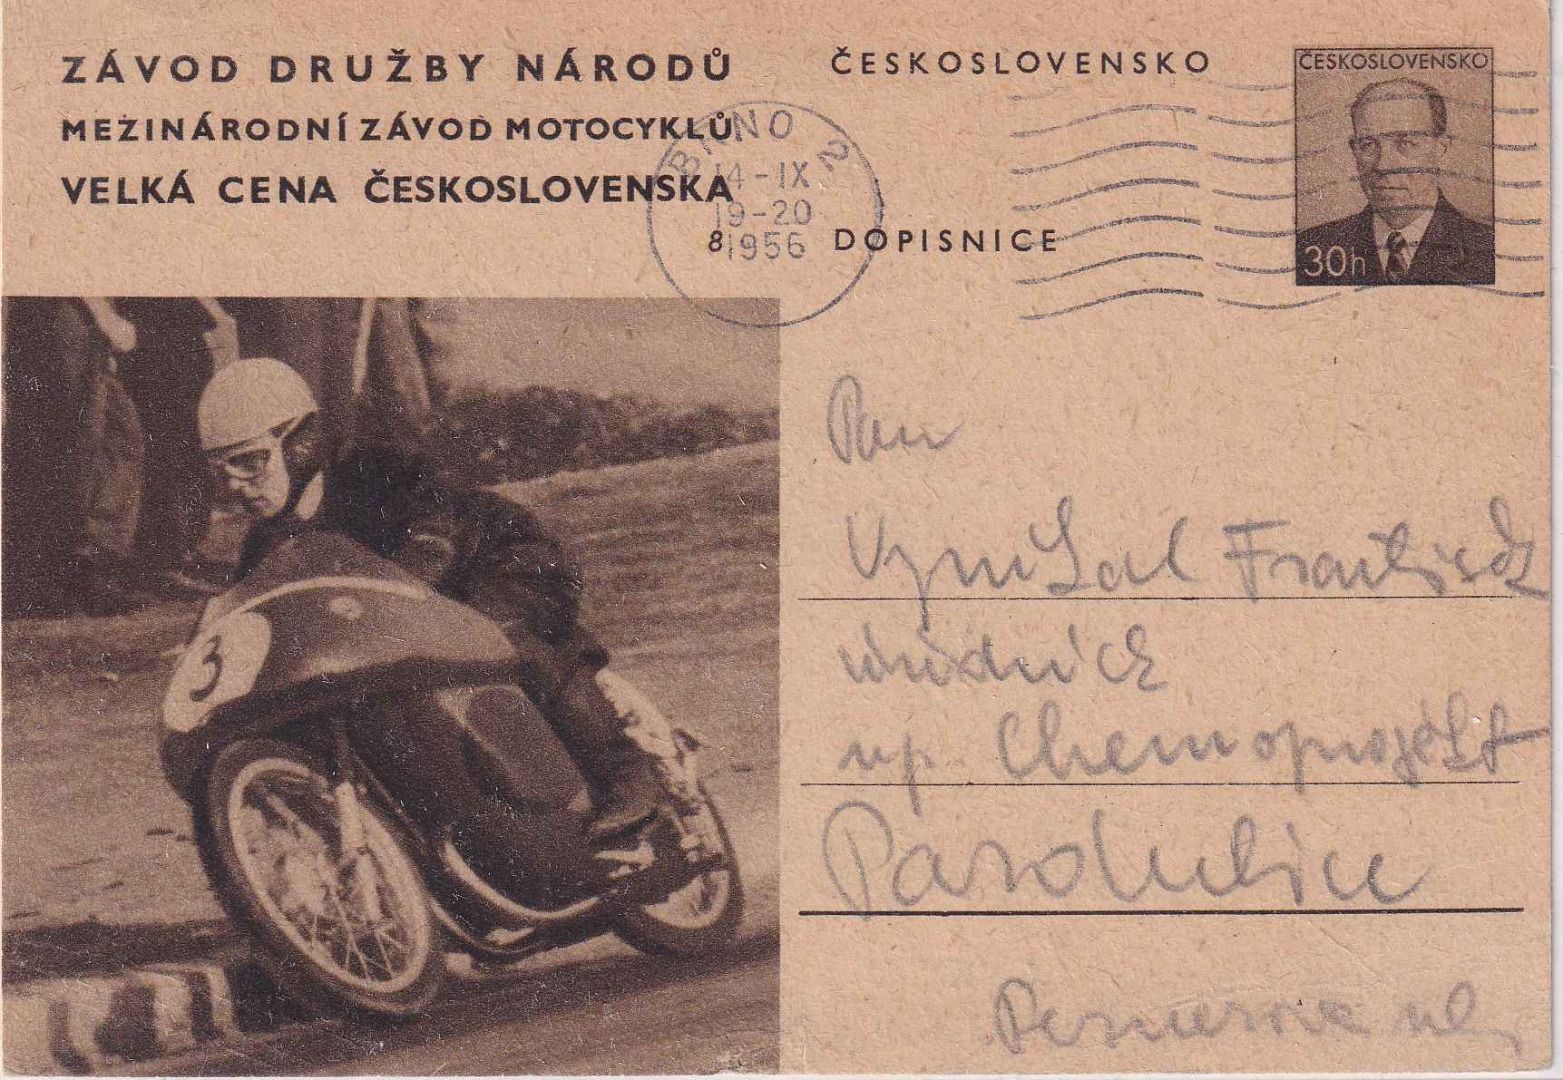 ZÁVOD DRUŽBY NÁRODŮ
MEZINÁRODNÍ ZÁVOD MOTOCYKLŮ
VELKÁ CENA ČESKOSLOVENSKA
ČESKOSLOVENSKO
ČESKOSLOVENSKO
30h
BRNO 2
14-IX
19-20
1956
8
DOPISNICE
3
Pan
František
úředník
np. Chemoprojekt
Pardubice
Pernerova ul.